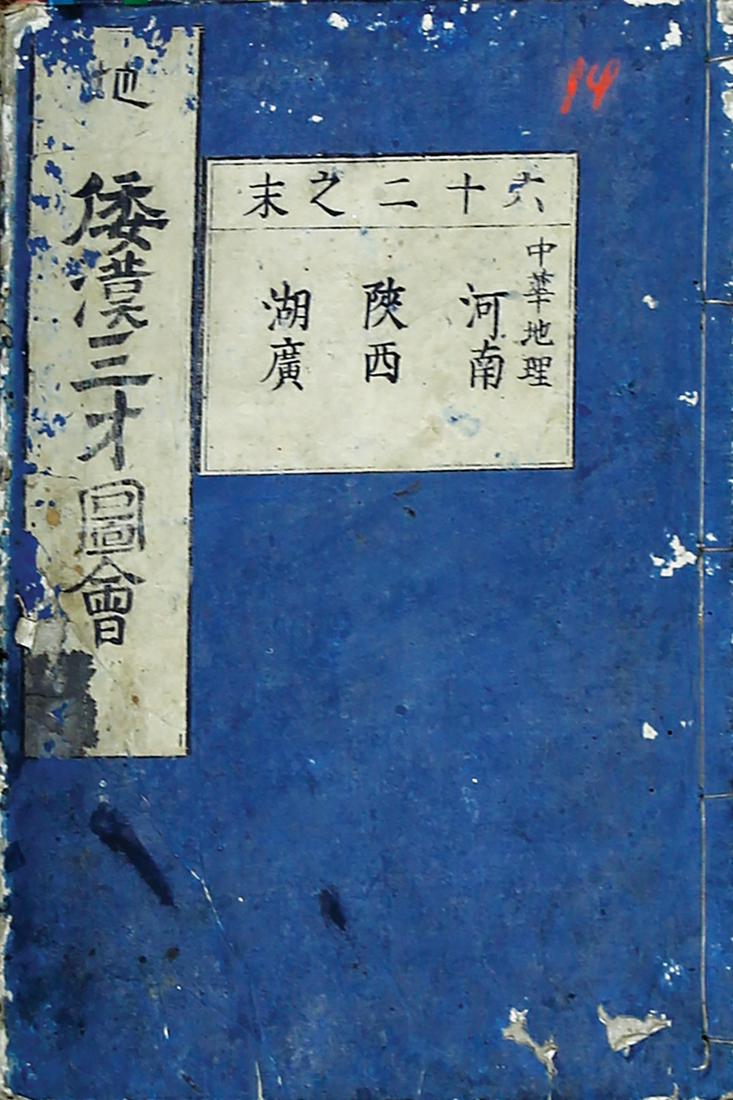 地
倭漢三才圖會
六十二之末
中華地理
河南
陝西
湖廣
14